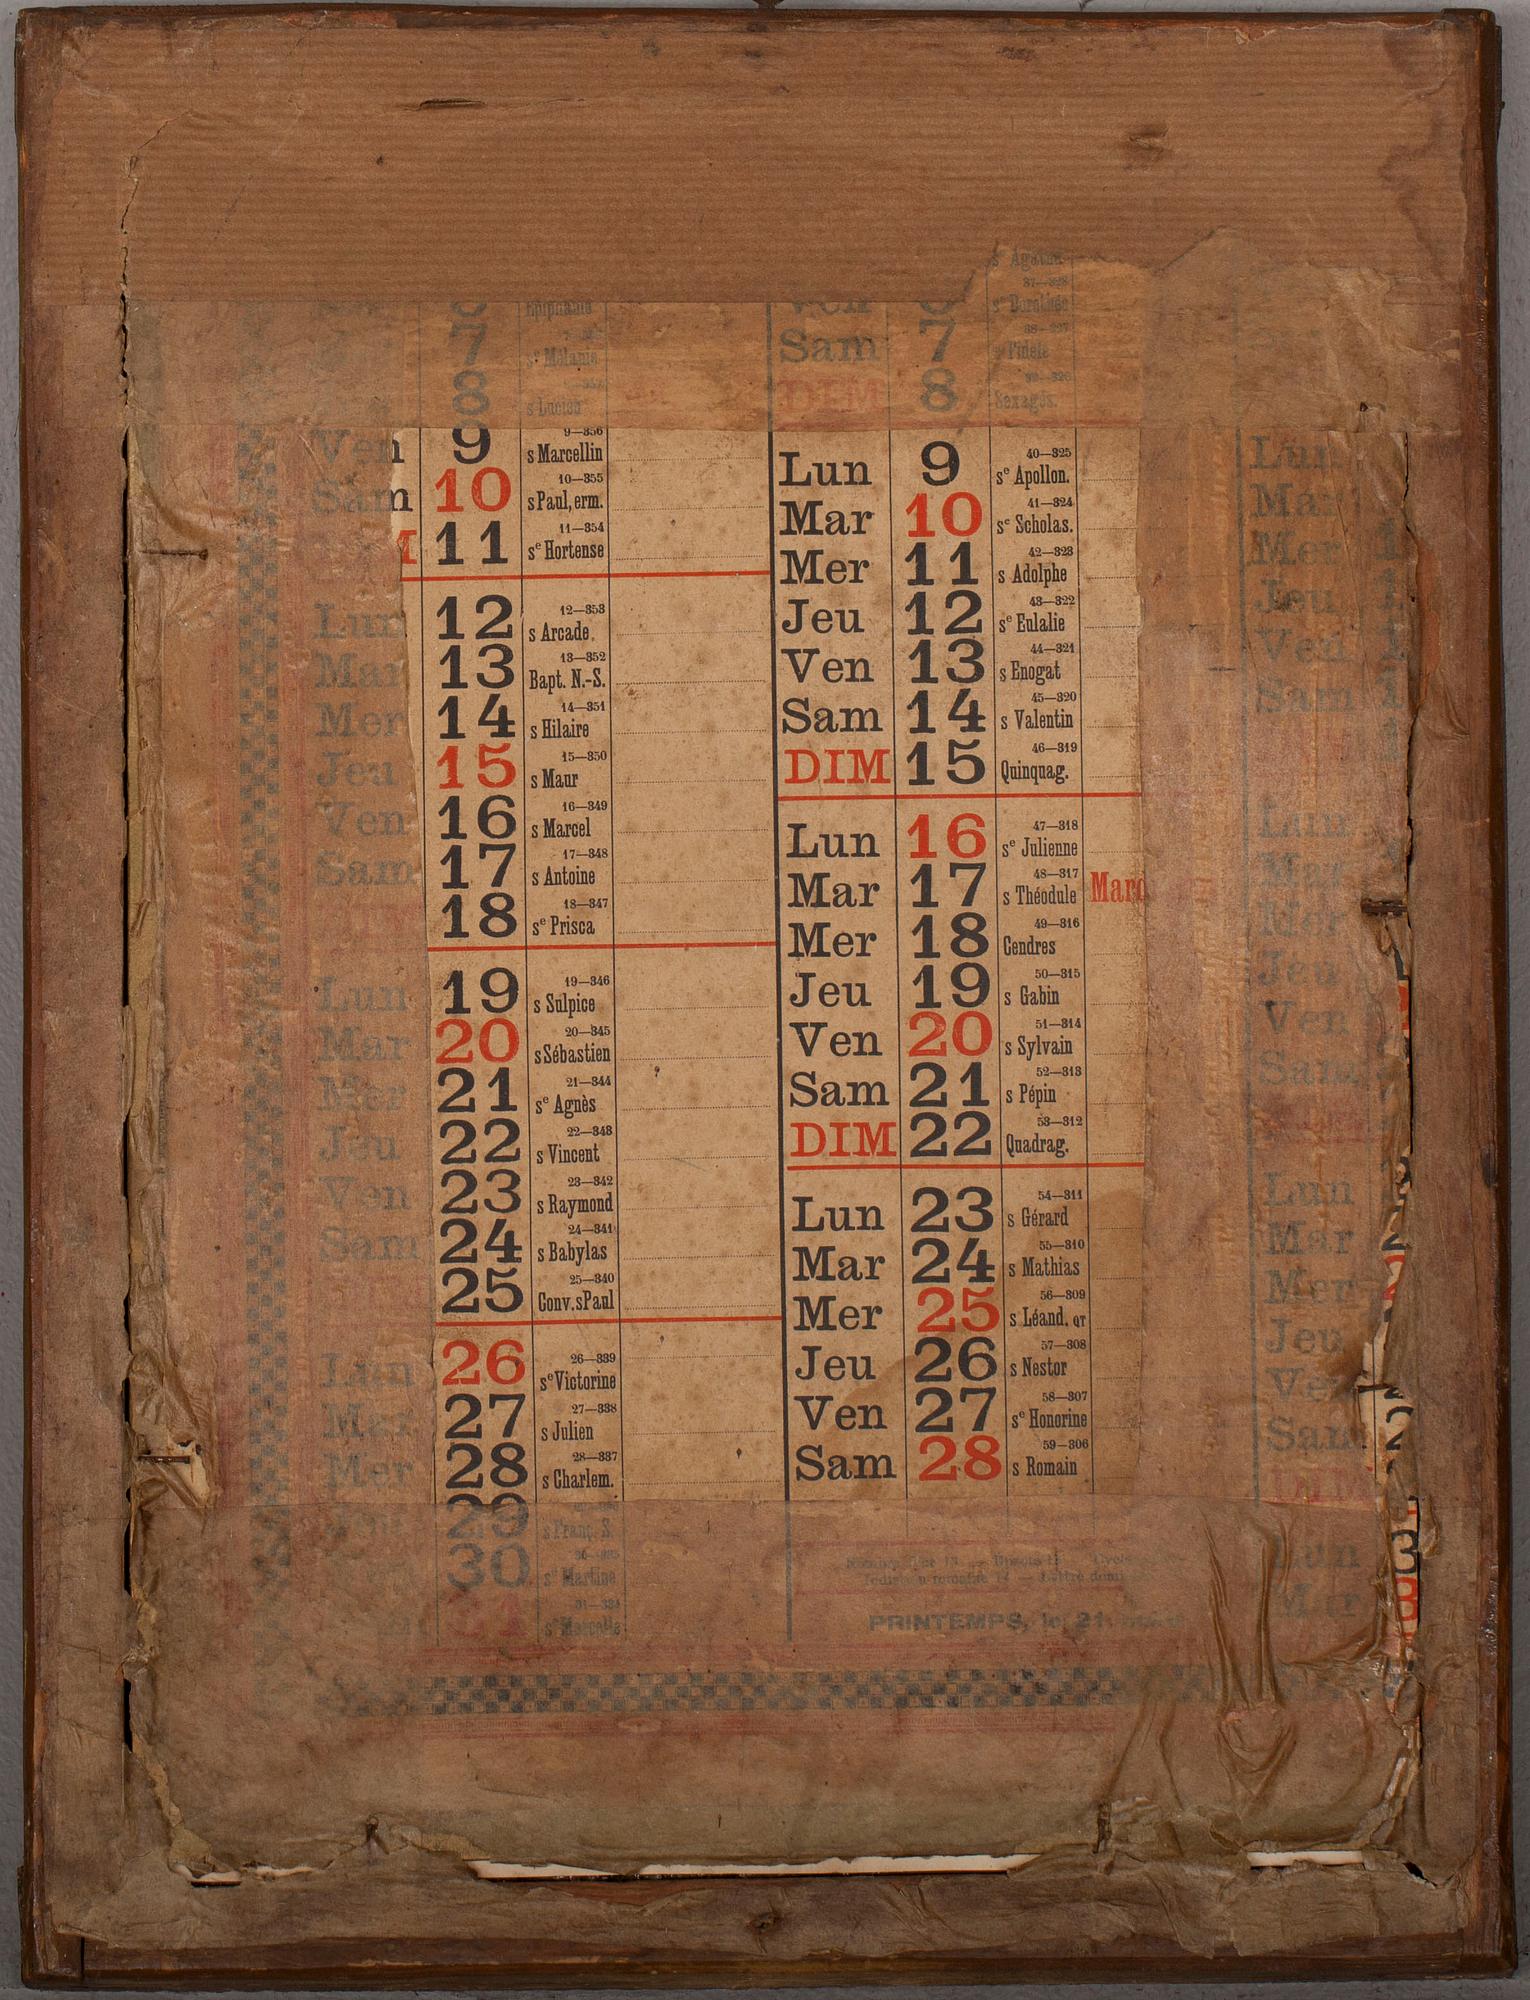 Epiphanie
7
sᵉ Mélanie
8
s Lucien
Ven 9 9—356 s Marcellin
Sam 10 10—355 s Paul, erm.
M 11 11—354 sᵉ Hortense
Lun 12 12—353 s Arcade
Mar 13 13—352 Bapt. N.-S.
Mer 14 14—351 s Hilaire
Jeu 15 15—350 s Maur
Ven 16 16—349 s Marcel
Sam 17 17—348 s Antoine
18 18—347 sᵉ Prisca
Lun 19 19—346 s Sulpice
Mar 20 20—345 s Sébastien
Mer 21 21—344 sᵉ Agnès
Jeu 22 22—343 s Vincent
Ven 23 23—342 s Raymond
Sam 24 24—341 s Babylas
25 25—340 Conv. s Paul
Lun 26 26—339 sᵉ Victorine
Mar 27 27—338 s Julien
Mer 28 28—337 s Charlem.
Jeu 29 s Franç. S.
30 sᵉ Martine
31 31—334 sᵉ Marcelle
sᵉ Agathe
Ven 37—328 sᵉ Dorothée
Sam 7 38—327 s Fidèle
DIM 8 Sexagés.
Lun 9 40—325 sᵉ Apollon.
Mar 10 41—324 sᵉ Scholas.
Mer 11 42—323 s Adolphe
Jeu 12 43—322 sᵉ Eulalie
Ven 13 44—321 s Enogat
Sam 14 45—320 s Valentin
DIM 15 46—319 Quinquag.
Lun 16 47—318 sᵉ Julienne
Mar 17 48—317 s Théodule Mard
Mer 18 49—316 Cendres
Jeu 19 50—315 s Gabin
Ven 20 51—314 s Sylvain
Sam 21 52—313 s Pépin
DIM 22 53—312 Quadrag.
Lun 23 54—311 s Gérard
Mar 24 55—310 s Mathias
Mer 25 56—309 s Léand. QT
Jeu 26 57—308 s Nestor
Ven 27 58—307 sᵉ Honorine
Sam 28 59—306 s Romain
PRINTEMPS, le 21
Lun
Mar
Mer
Jeu
Ven
Sam
Lun
Mar
Mer
Jeu
Ven
Sam
Lun
Mar
Mer
Jeu
Ve
Sam
DIM
Lun
Mar